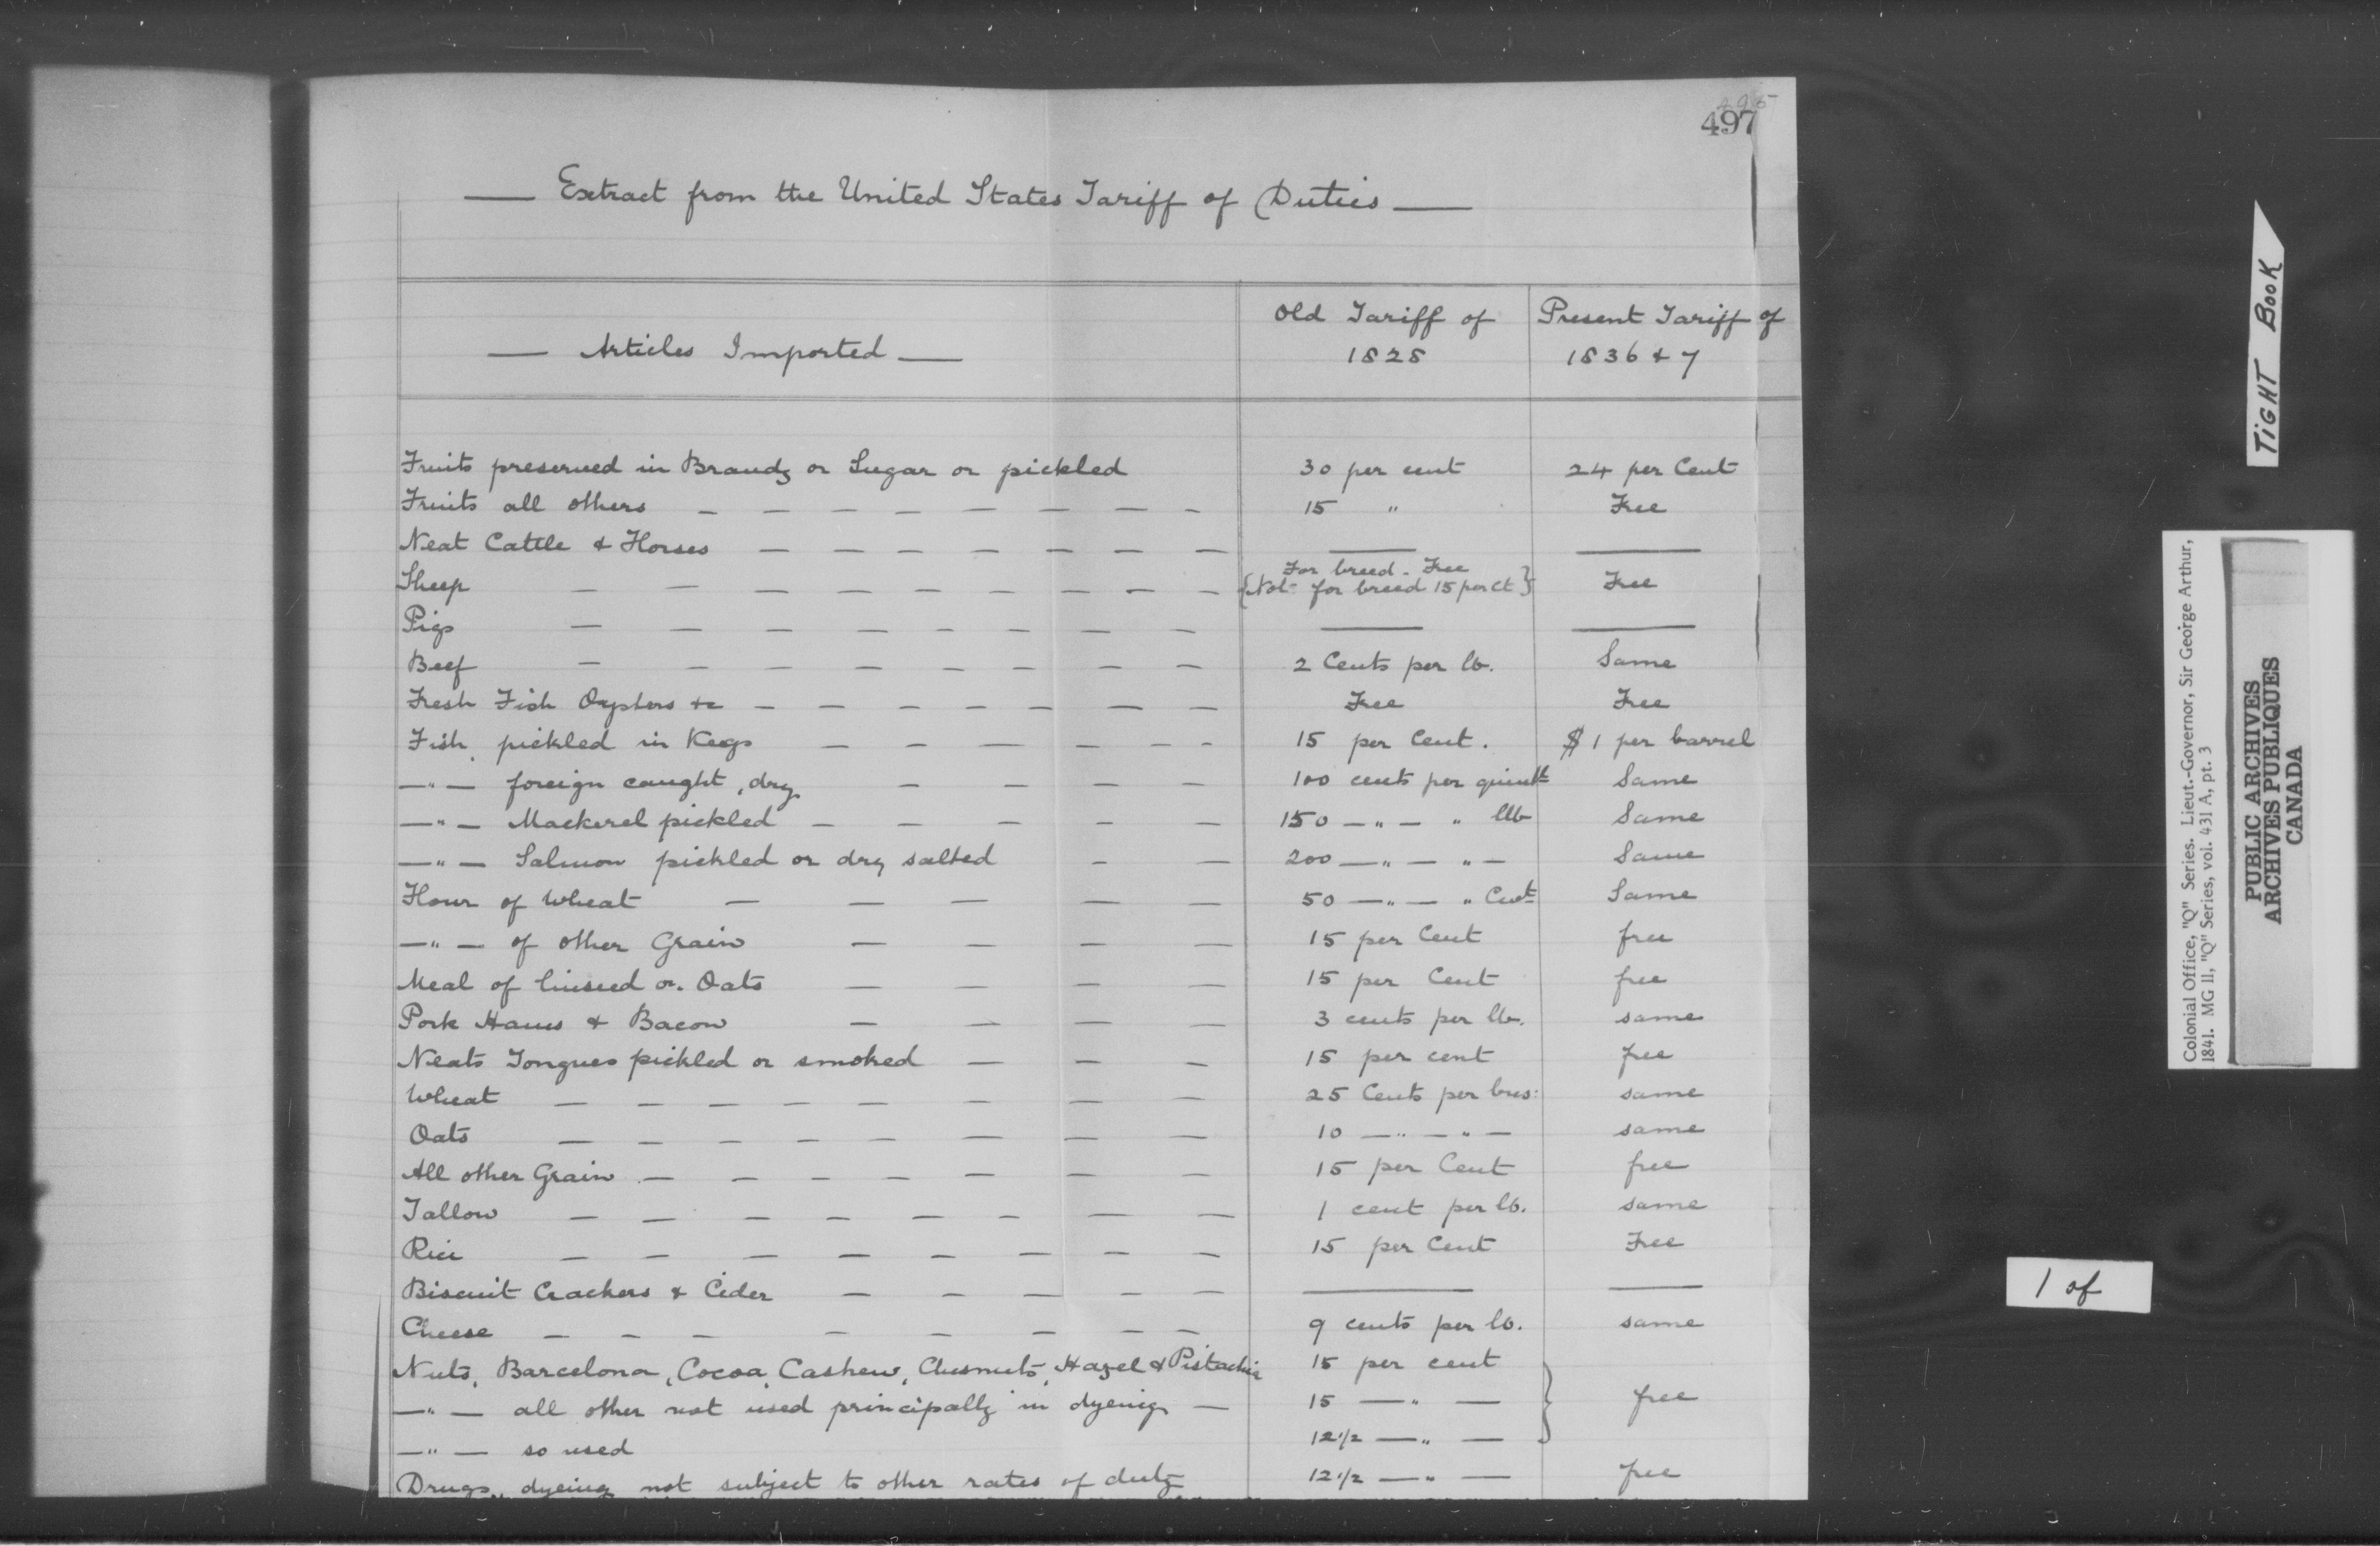 495
497
— Extract from the United States Tariff of Duties —
— Articles Imported —
Old Tariff of 1828
Present Tariff of 1836 & 7
Fruits preserved in Brandy or Sugar or pickled 30 per cent 24 per Cent
Fruits all others — — — — — — — — 15 " Free
Neat Cattle & Horses — — — — — — — — —
Sheep — — — — — — — — — {For breed - Free Not for breed 15 per ct} Free
Pigs — — — — — — — — — —
Beef — — — — — — — — 2 Cents per lb. Same
Fresh Fish Oysters &c — — — — — — — Free Free
Fish, pickled in Kegs — — — — — — 15 per Cent. $1 per barrel
—"— foreign caught, dry — — — — 100 cents per quintl Same
—"— Mackerel pickled — — — — — 150 —"— " llb Same
—"— Salmon pickled or dry salted — — 200 —"— "— Same
Flour of Wheat — — — — — 50 —"— " Cwt Same
—"— of other Grain — — — — 15 per Cent free
Meal of linseed or Oats — — — — 15 per Cent free
Pork Hams & Bacon — — — — 3 cents per lb. same
Neats Tongues pickled or smoked — — — 15 per cent free
Wheat — — — — — — — — 25 Cents per bus: same
Oats — — — — — — — — 10 —"— "— same
All other Grain — — — — — — — 15 per Cent free
Tallow — — — — — — — — 1 cent per lb. same
Rice — — — — — — — — 15 per Cent Free
Biscuit Crackers & Cider — — — — — — —
Cheese — — — — — — — — 9 cents per lb. same
Nuts, Barcelona, Cocoa, Cashew, Chesnuts, Hazel & Pistachia 15 per cent
—"— all other not used principally in dyeing — 15 —"— } free
—"— so used 12 1/2 —"—
Drugs, dyeing not subject to other rates of duty 12 1/2 —"— free
TIGHT BOOK
Colonial Office, "Q" Series. Lieut.-Governor, Sir George Arthur,
1841. MG 11, "Q" Series, vol. 431 A, pt. 3
PUBLIC ARCHIVES
ARCHIVES PUBLIQUES
CANADA
1 of